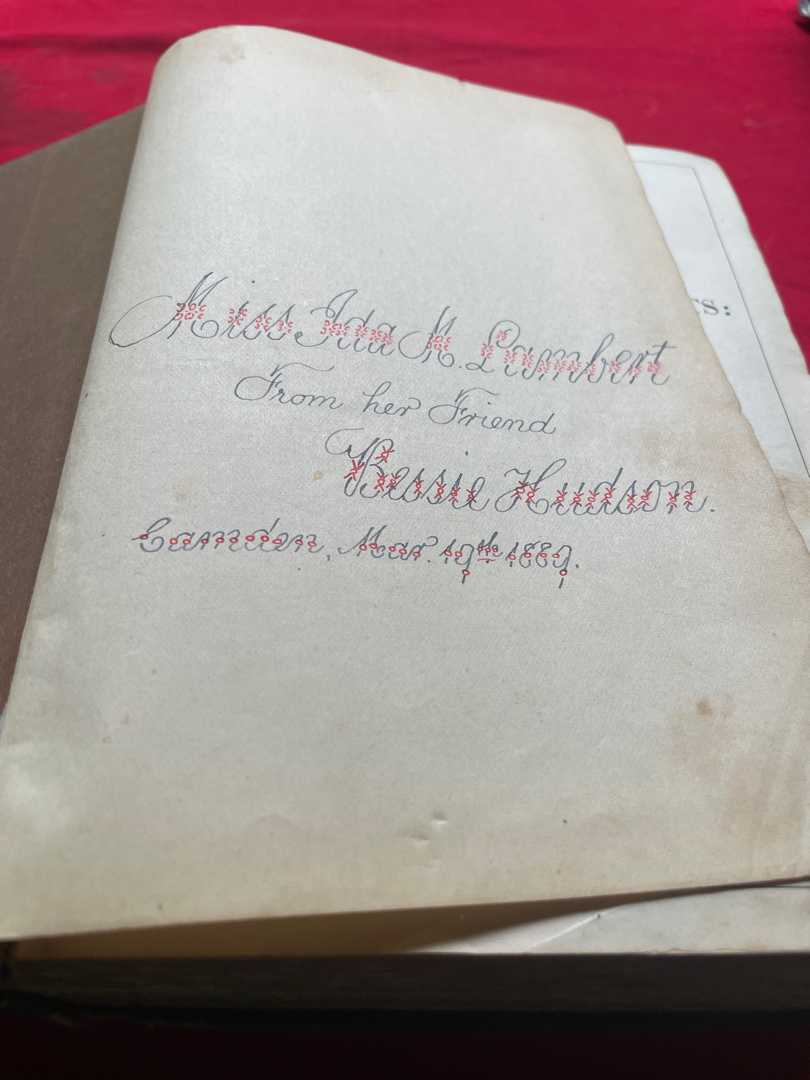 Miss Ida M. Lambert
From her Friend
Bessie Hudson.
Camden, Mar. 19th 1889.